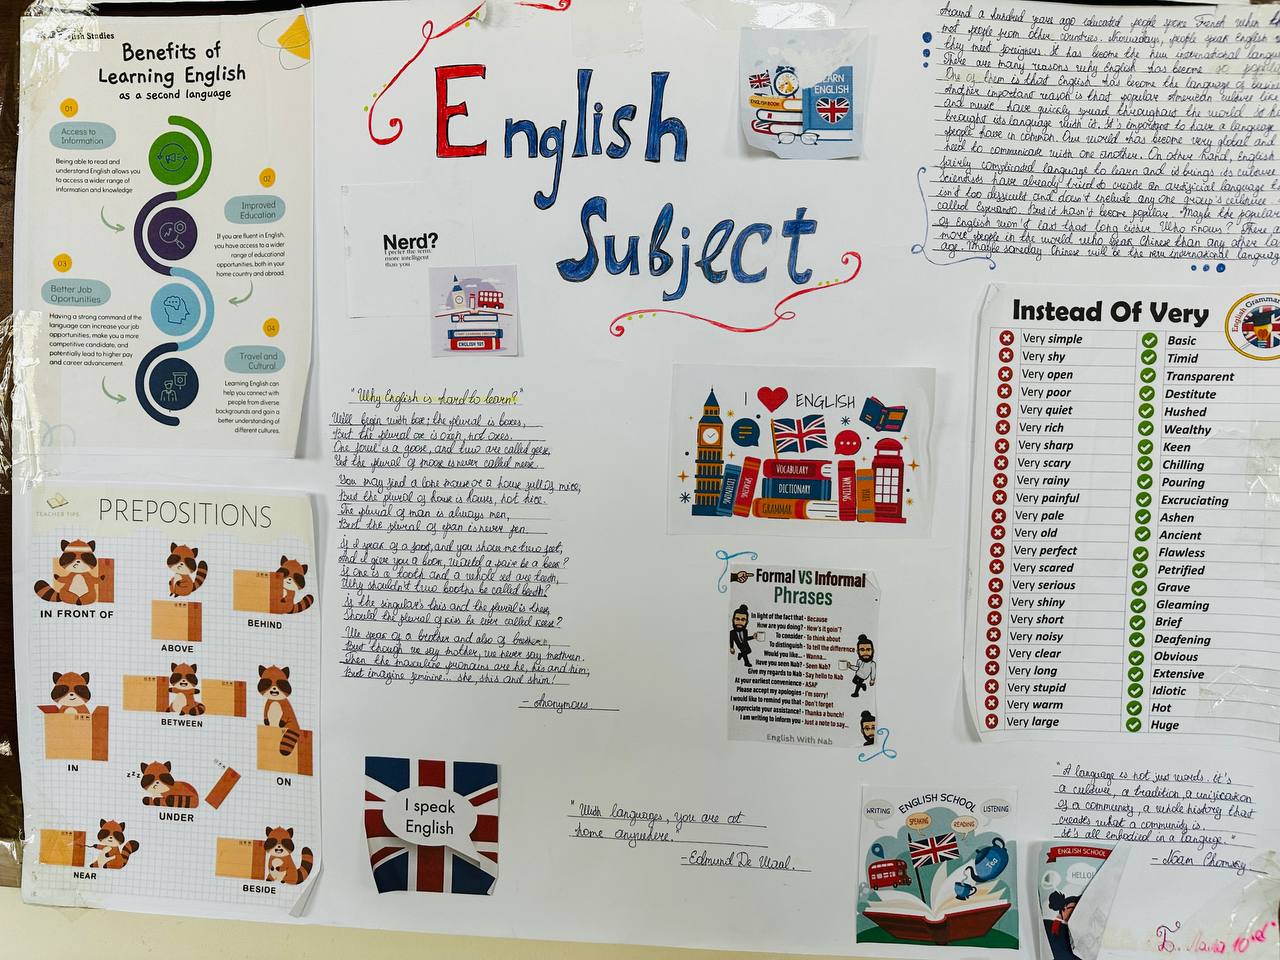 English Studies
Benefits of
Learning English
as a second language
01
Access to
Information
Being able to read and
understand English allows you
to access a wider range of
information and knowledge
02
Improved
Education
If you are fluent in English,
you have access to a wider
range of educational
opportunities, both in your
home country and abroad.
03
Better Job
Oportunities
Having a strong command of the
language can increase your job
opportunities, make you a more
competitive candidate, and
potentially lead to higher pay
and career advancement.
04
Travel and
Cultural
Learning English can
help you connect with
people from diverse
backgrounds and gain a
better understanding of
different cultures.
TEACHER TIPS
PREPOSITIONS
IN FRONT OF
ABOVE
BEHIND
IN
BETWEEN
ON
UNDER
NEAR
BESIDE
English
Subject
Nerd?
I prefer the term:
more intelligent
than you.
ENGLISH 101
ENGLISH BOOK
LEARN
ENGLISH
"Why English is hard to learn?"
We'll begin with box; the plural is boxes,
But the plural of ox is oxen, not oxes.
One fowl is a goose, and two are called geese,
Yet the plural of moose is never called meese.
You may find a lone mouse or a house full of mice,
But the plural of house is houses, not hice.
The plural of man is always men,
But the plural of pan is never pen.
If I speak of a foot, and you show me two feet,
And I give you a book, would a pair be a beek?
If one is a tooth and a whole set are teeth,
Why shouldn't two booths be called beeth?
If the singular's this and the plural is these,
Should the plural of kiss be ever called keese?
We speak of a brother and also of brethren,
But though we say mother, we never say methren.
Then the masculine pronouns are he, his and him;
But imagine feminine... she, shis and shim!
- Anonymous.
I speak
English
I ENGLISH
LISTENING
SPEAKING
VOCABULARY
DICTIONARY
GRAMMAR
WRITING
Formal VS Informal
Phrases
In light of the fact that - Because
How are you doing? - How's it goin'?
To consider - To think about
To distinguish - To tell the difference
Would you like... - Wanna...
Have you seen Nab? - Seen Nab?
Give my regards to Nab - Say hello to Nab
At your earliest convenience - ASAP
Please accept my apologies - I'm sorry!
I would like to remind you that - Don't forget
I appreciate your assistance! - Thanks a bunch!
I am writing to inform you - Just a note to say...
English With Nab
"With languages, you are at
home anywhere."
- Edmund De Waal.
Around a hundred years ago educated people spoke French when they
met people from other countries. Nowadays, people speak English
they meet foreigners. It has become the new international langua
There are many reasons why English has become so popular
One of them is that English has become the language of busine
Another important reason is that popular American culture like
and music have quickly spread throughout the world
brought its language with it. It's important to have a language
people have in common. Our world has become very global and
need to communicate with one another. On other hand, English
fairly complicated language to learn and it brings its culture
Scientists have already tried to create an artificial language
isn't too difficult and doesn't include any one group's culture.
called Esperanto. But it hasn't become popular. Maybe the popular
of English won't last that long either. Who knows? There a
more people in the world who speak Chinese than any other la
age. Maybe someday Chinese will be the new international languag
Instead Of Very
English Grammar
Very simple Basic
Very shy Timid
Very open Transparent
Very poor Destitute
Very quiet Hushed
Very rich Wealthy
Very sharp Keen
Very scary Chilling
Very rainy Pouring
Very painful Excruciating
Very pale Ashen
Very old Ancient
Very perfect Flawless
Very scared Petrified
Very serious Grave
Very shiny Gleaming
Very short Brief
Very noisy Deafening
Very clear Obvious
Very long Extensive
Very stupid Idiotic
Very warm Hot
Very large Huge
ENGLISH SCHOOL
WRITING
SPEAKING
READING
LISTENING
Tea
ENGLISH SCHOOL
HELLO!
"A language is not just words. It's
a culture, a tradition, a unification
of a community, a whole history that
creates what a community is.
It's all embodied in a language."
- Noam Chomsky
10"d"